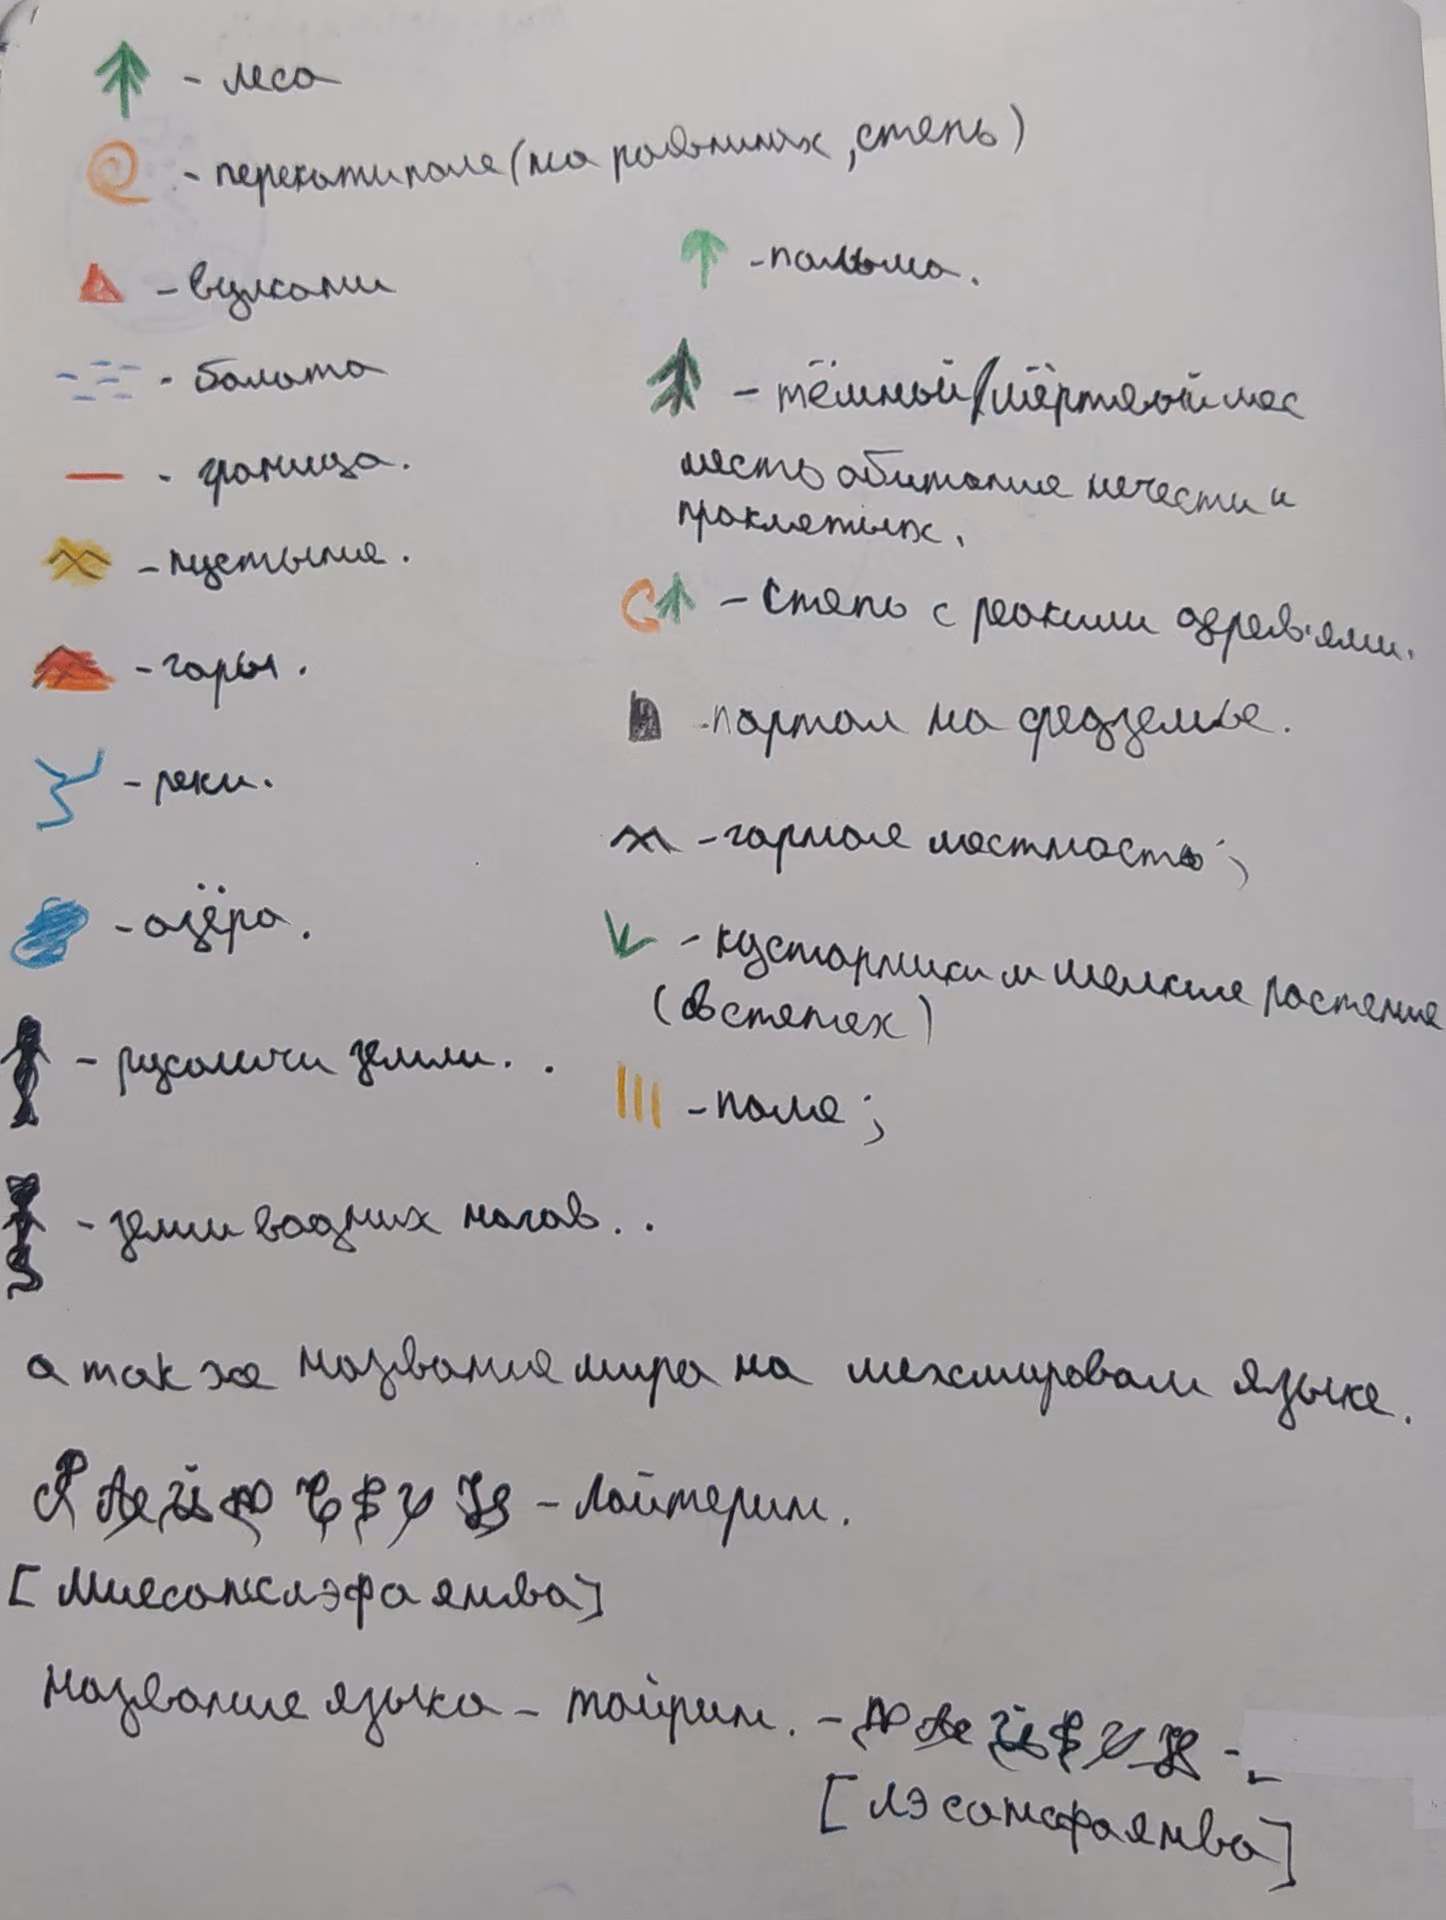 - леса
- перекатиполе (на равнинах, степь)
- вулкани
- болота
- граница.
- пустыния.
- горы.
- реки.
- озёра.
- русаличи земли. .
- земли водних нагов. .
- пальма.
- тёмный/мёртвый лес
месть обитания нечести и
проклятых.
- степь с редкими деревьями.
- портал на федземье.
- горная местность;
- кустарники и мелкие растение
(в степях)
- поля;
а так же названия мира на межмировом языке.
- Лайтерим.
[ Миесанжслэфа янва]
название языка - тайрим. -
[ лэсансфаянва]